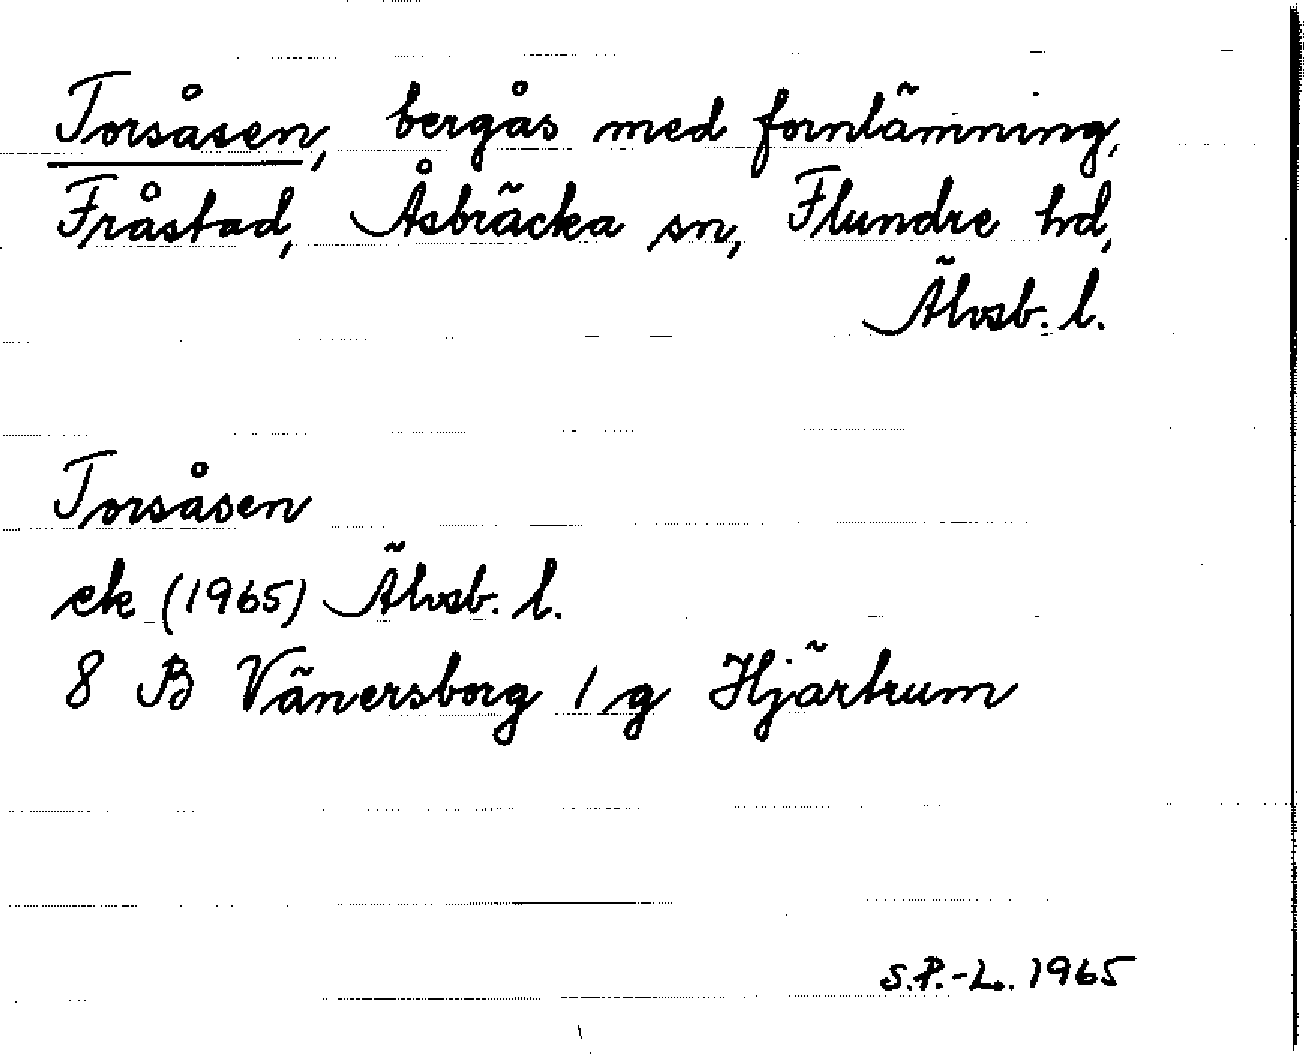 Torsåsen, bergås med fornlämning,
Fråstad, Åsbräcka sn, Flundre hd,
Älvsb. l.
Torsåsen
ek (1965) Älvsb. l.
8 B Vänersborg 1 g Hjärtum
S.P.-L. 1965